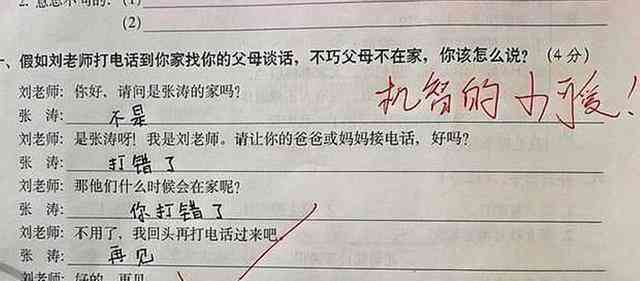 (2)
、假如刘老师打电话到你家找你的父母谈话，不巧父母不在家，你该怎么说？（4分）
刘老师：你好，请问是张涛的家吗？
机智的少爱！
张 涛：不是
刘老师：是张涛呀！我是刘老师。请让你的爸爸或妈妈接电话，好吗？
张 涛：打错了
刘老师：那他们什么时候会在家呢？
张 涛：你打错了
刘老师：不用了，我回头再打电话过来吧。
张 涛：再见
刘老师：好的，再见